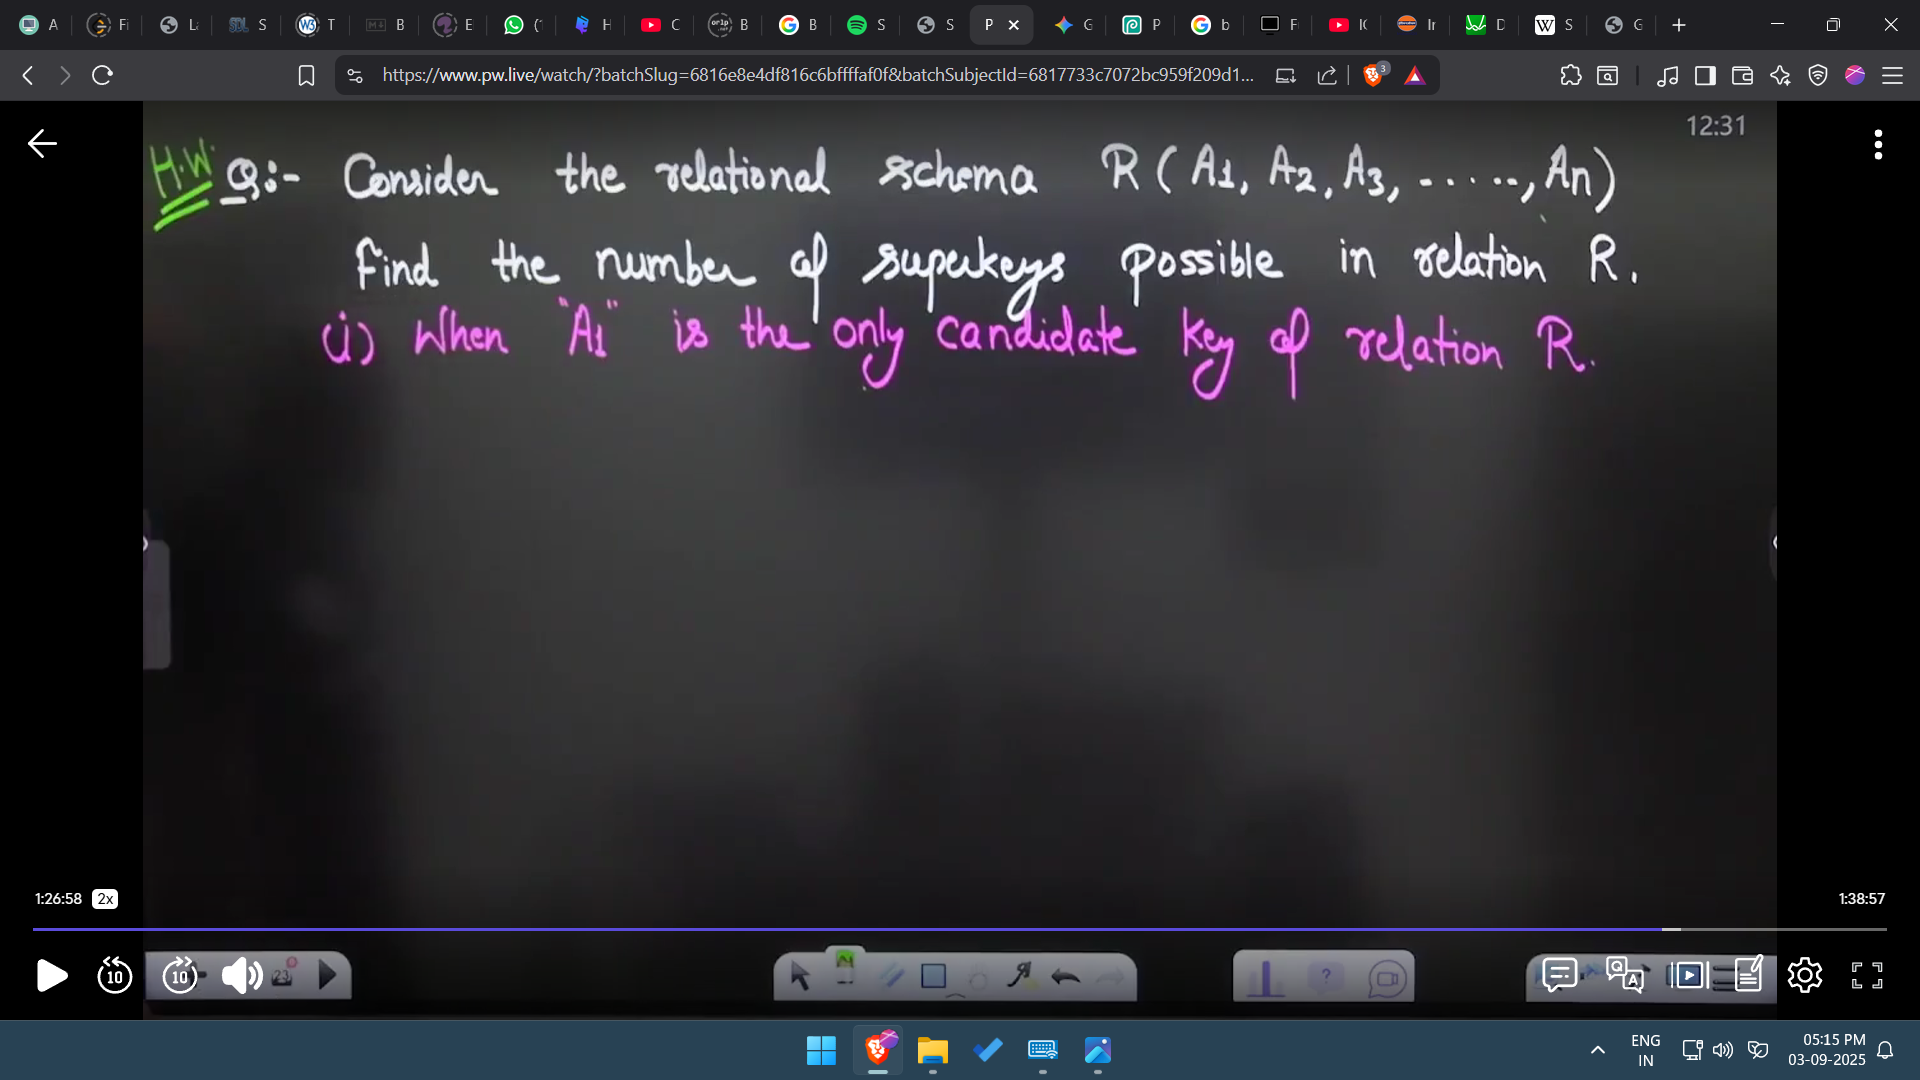 A Fi La SQL S T B E (1 H C B B S S P G P b F IC Ir D S G
https://www.pw.live/watch/?batchSlug=6816e8e4df816c6bffffaf0f&batchSubjectId=6817733c7072bc959f209d1... 3
12:31
H.W. Q:- Consider the relational schema R(A1, A2, A3, ......, An)
Find the number of superkeys possible in relation R.
(i) When "A1" is the only candidate key of relation R.
1:26:58 2x 1:38:57
10 10 23
ENG 05:15 PM
IN 03-09-2025